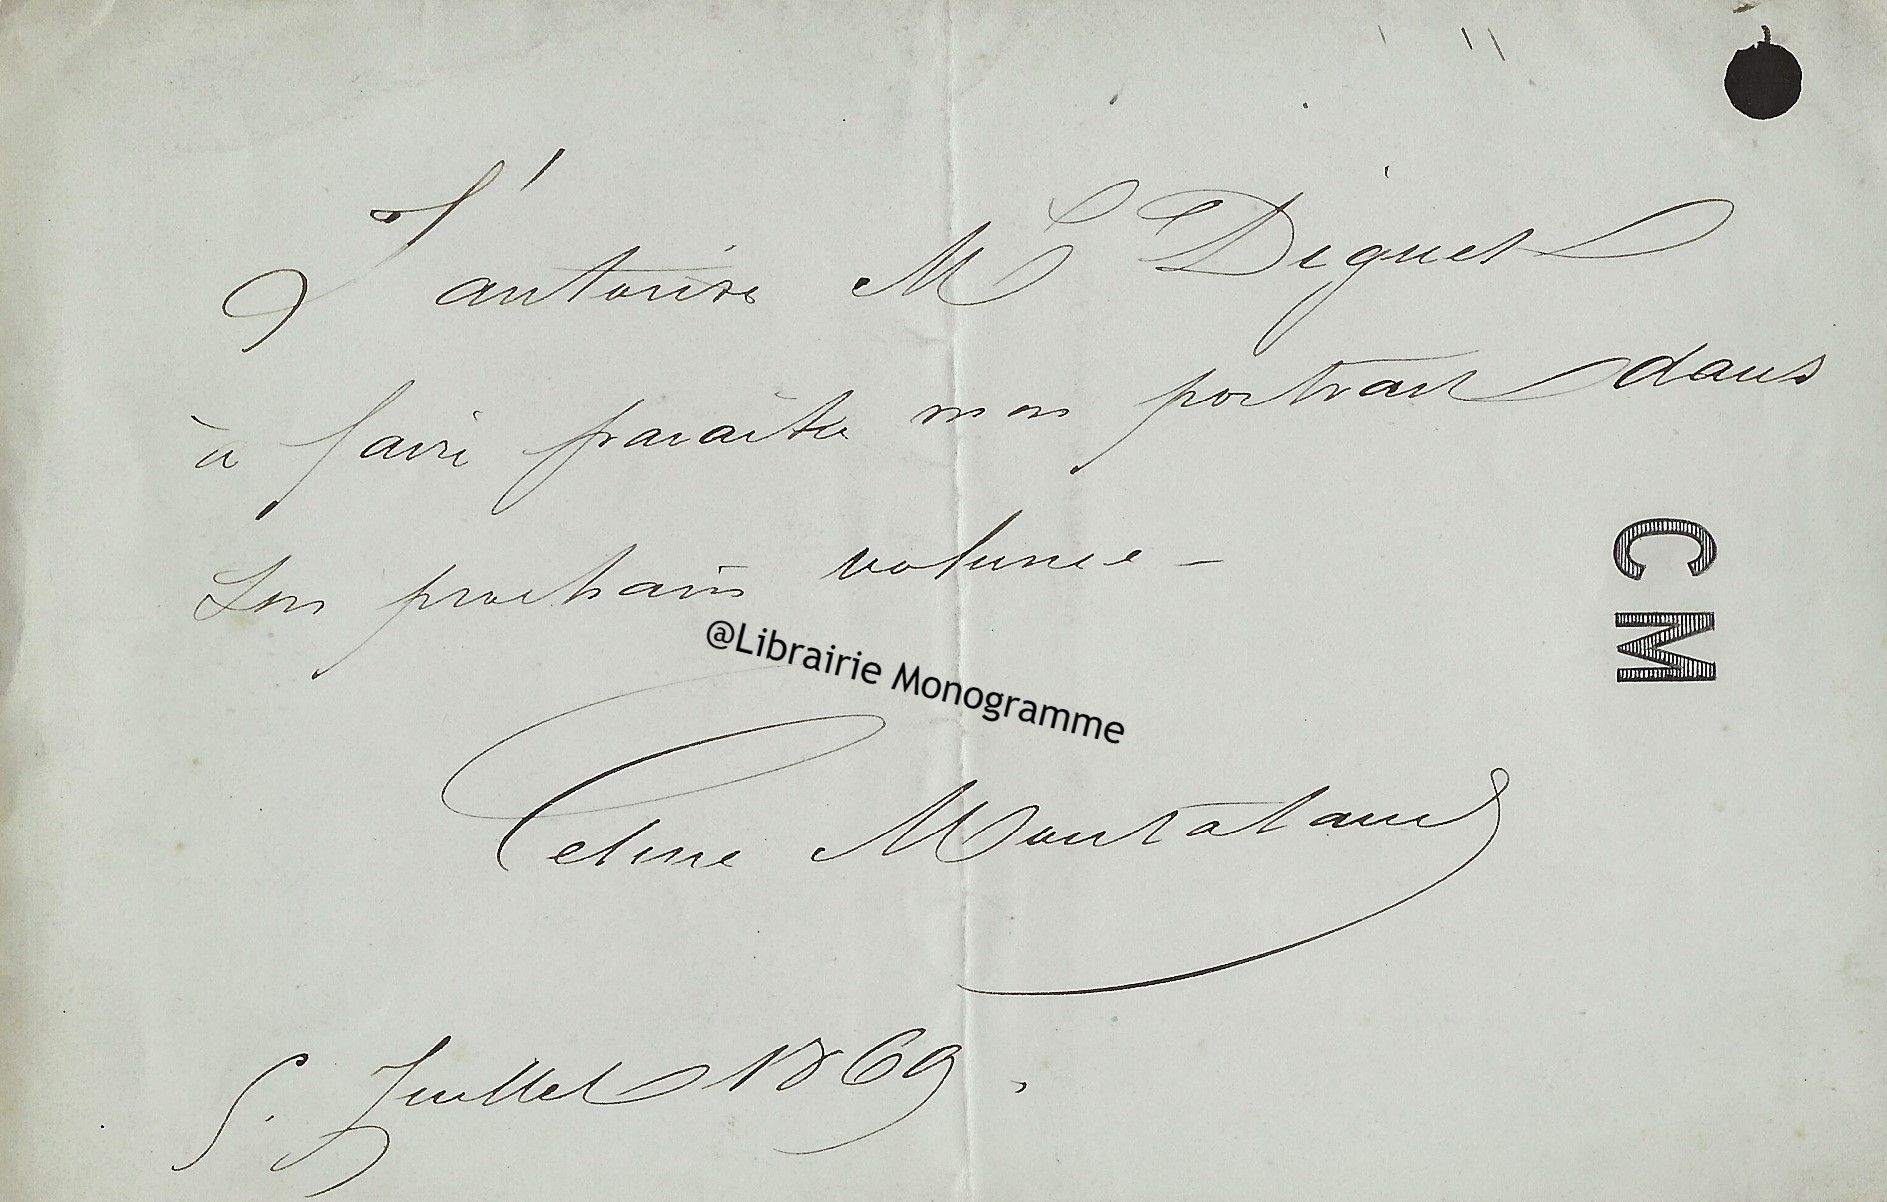 J'autorise Mr Diguet
à faire paraître mon portrait dans
son prochain volume –
@Librairie Monogramme
Celine Montaland
5. Juillet 1869.
CM